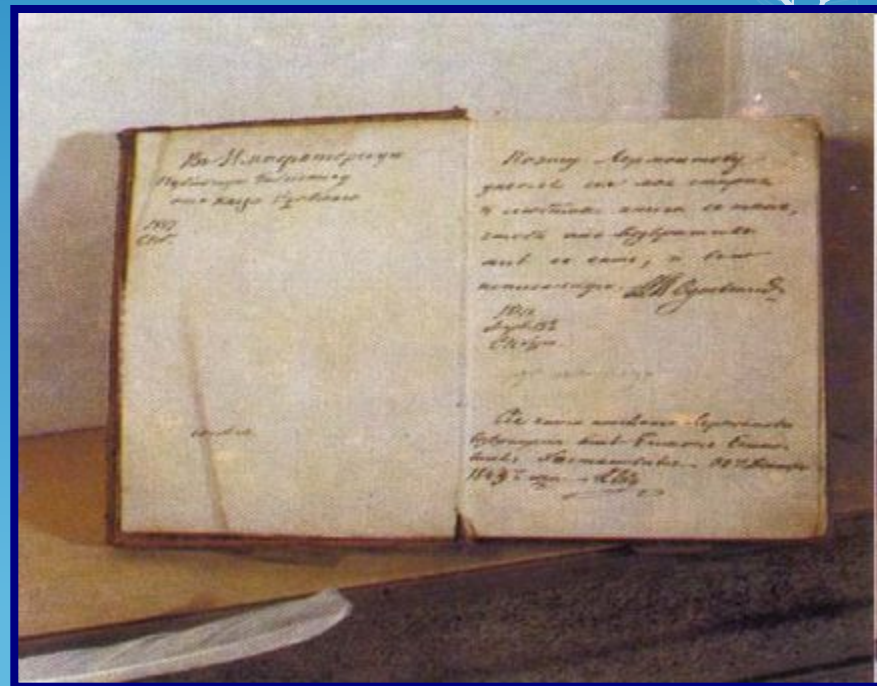 Въ Императорскую
Публичную Библиотеку
отъ Князя Одоевскаго
1857
СПб.
Поэту Лермонтову
дается сія моя старая
и любимая книга съ тѣмъ,
чтобы онъ возвратилъ
мнѣ ее самъ, и всю
исписанную. Одоевскій
1841
СПбургъ
Сія книга покойнаго Лермонтова
возвращена мнѣ Екимомъ Екимо-
вичемъ Хостатовымъ — 30го Января
1843го года